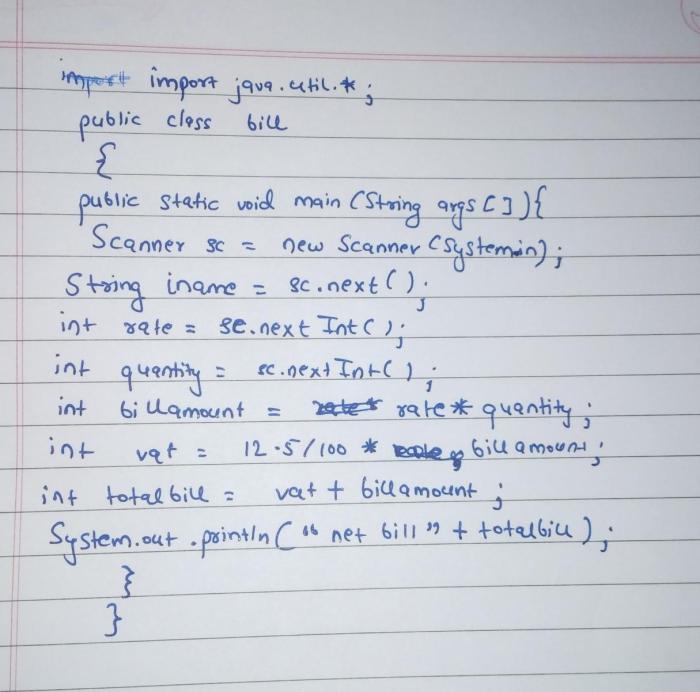 import import java.util.*;
public class bill
{
public static void main (String args []){
Scanner sc = new Scanner (System.in);
String iname = sc.next();
int rate = sc.next Int();
int quantity = sc.next Int();
int billamount = rate* rate* quantity;
int vat = 12.5/100 * billamount;
int totalbill = vat + billamount;
System.out.println(“ net bill ” + totalbill);
}
}